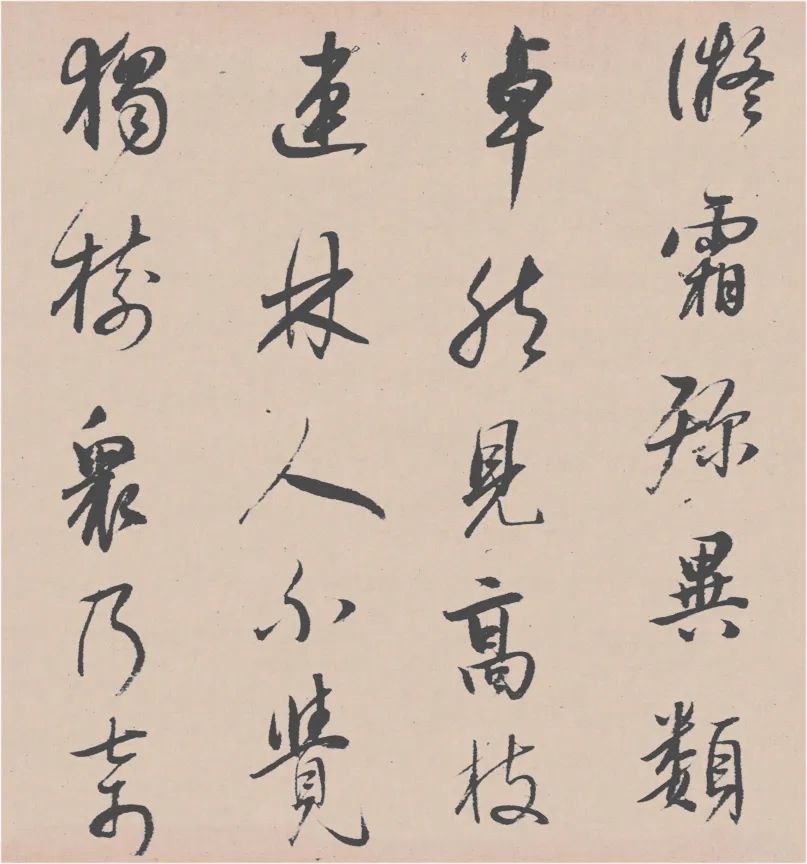 凝霜殄異類
卓然見高枝
連林人不覺
獨樹衆乃奇